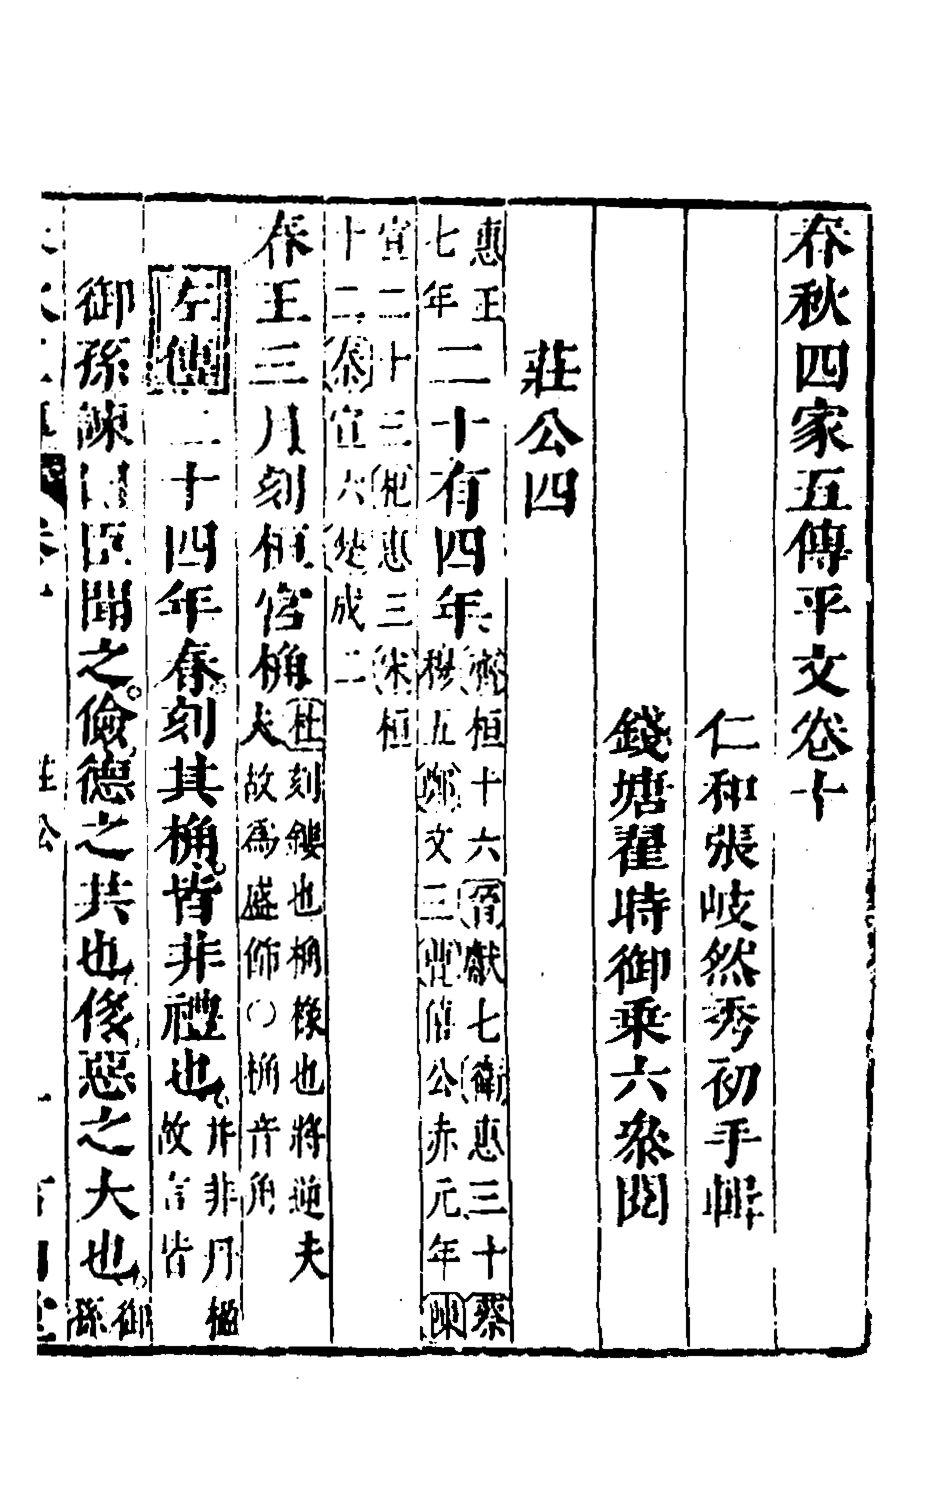 春秋四家五傳平文卷十
仁和張岐然秀初手輯
錢塘翟時御乘六叅閱
莊公四
惠王
七年
二十有四年
齊桓十六晉獻七衛惠三十蔡
穆五鄭文三曹僖公赤元年陳
宣二十三杞惠三宋桓
十二秦宣六楚成二
春王三月刻桓宮桷
杜刻鏤也桷椽也將逆夫
人故爲盛飾○桷音角
左傳二十四年春刻其桷皆非禮也
并非丹楹
故言皆
御孫諫曰臣聞之儉德之共也侈惡之大也
御
孫
莊公